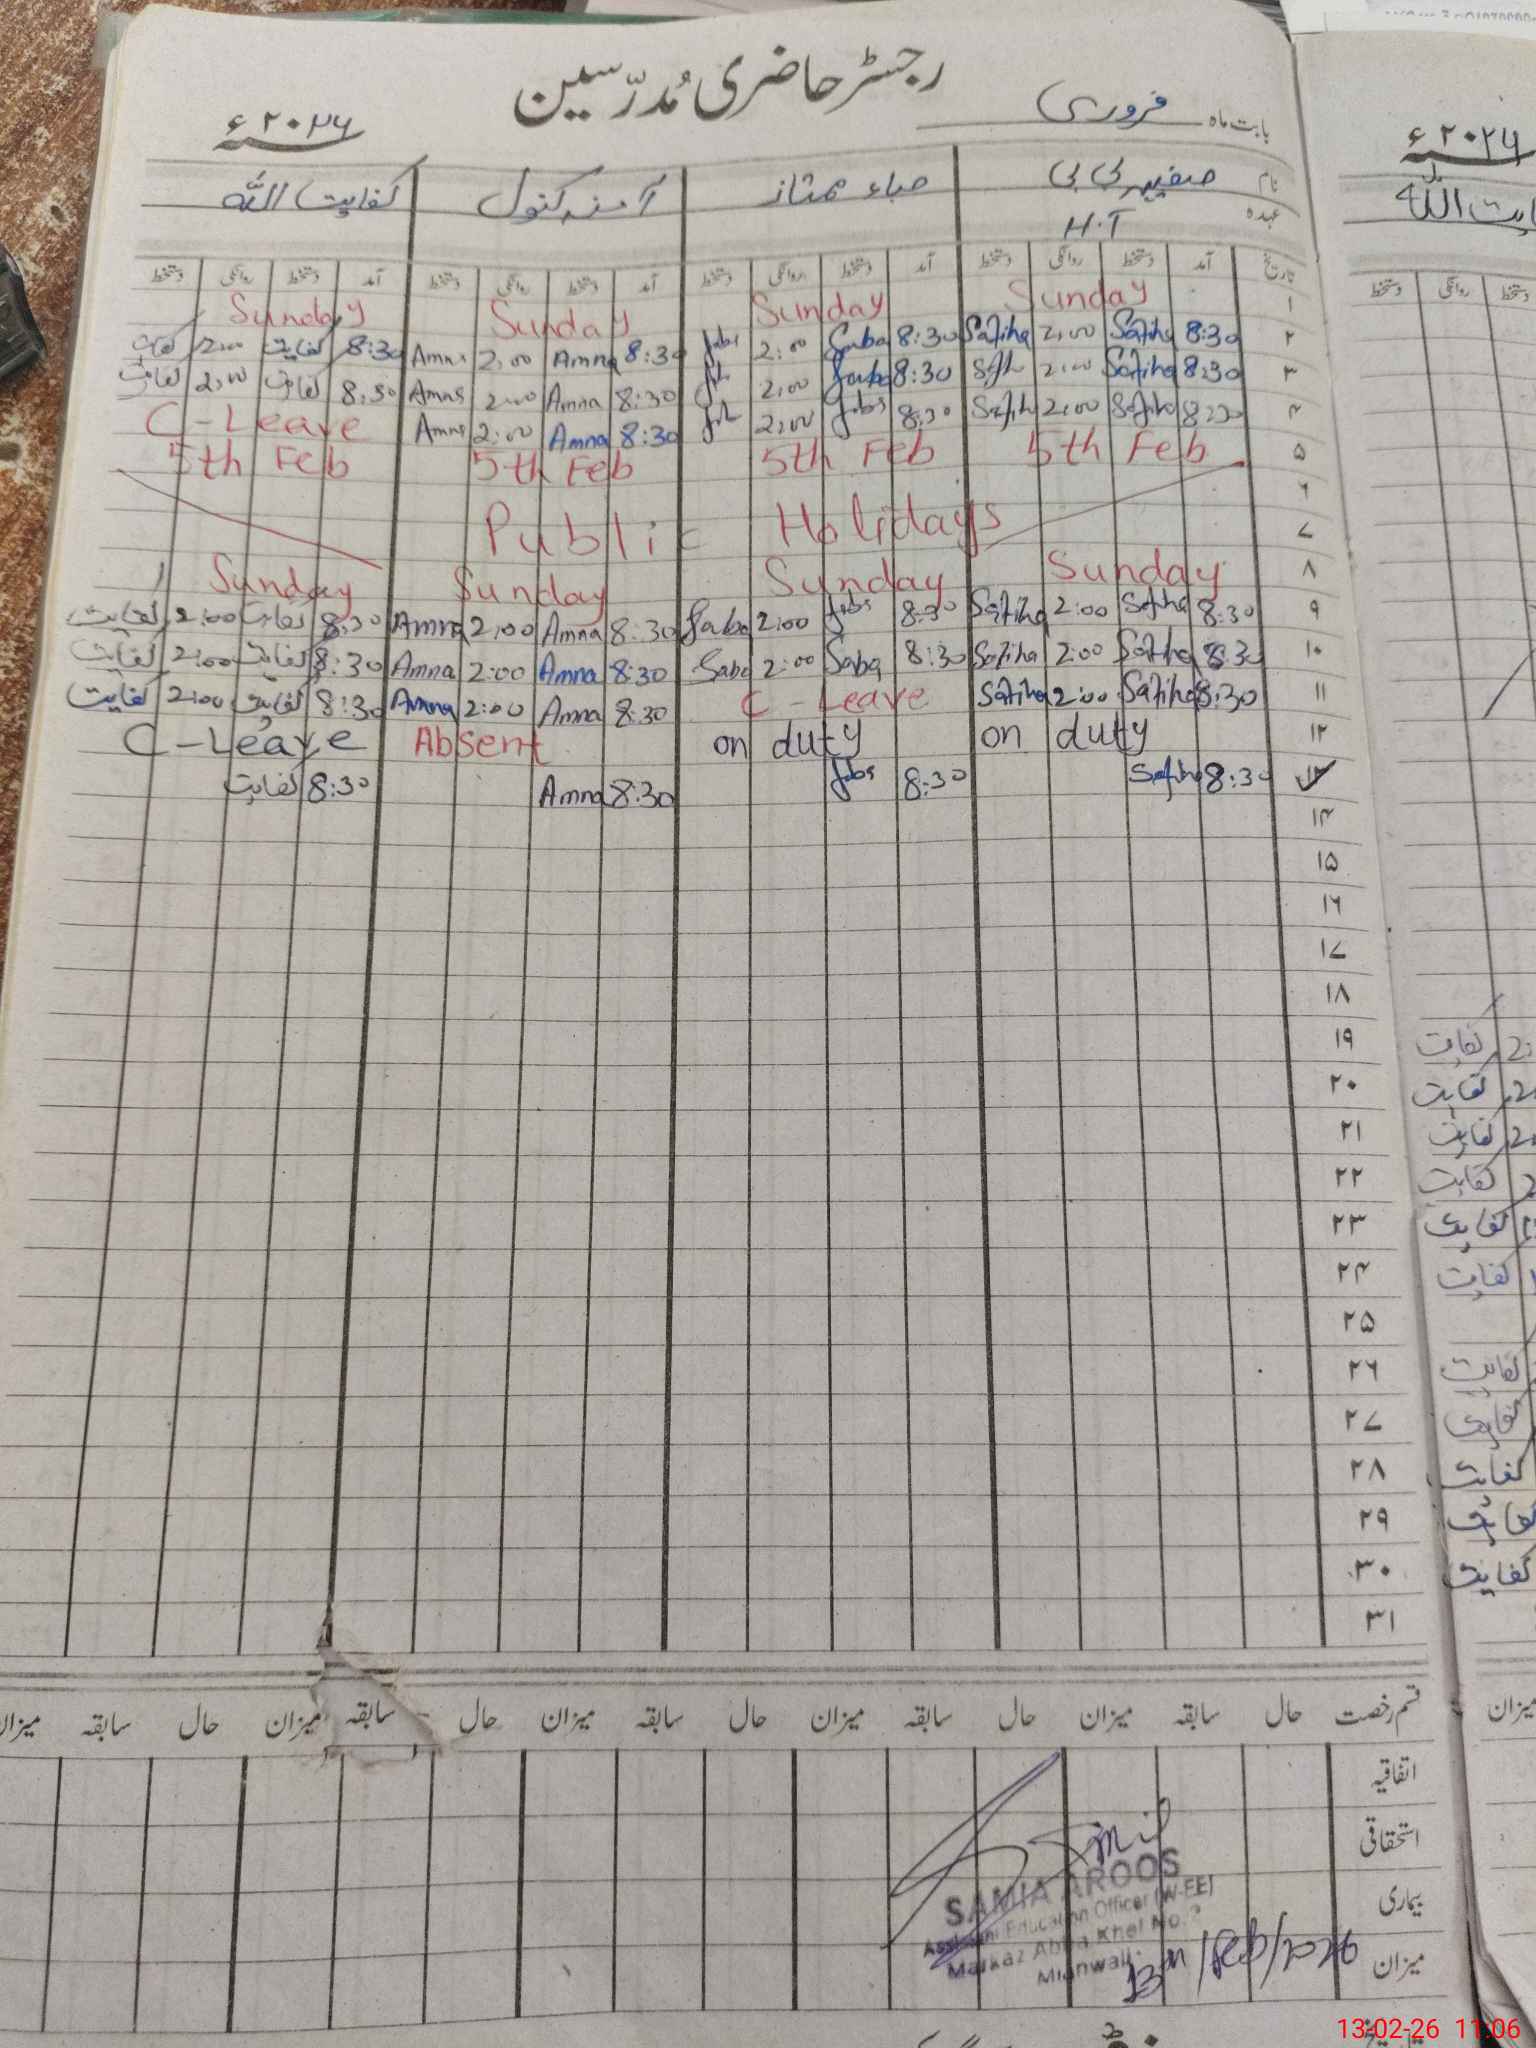 رجسٹر حاضری مُدرّسین
بابت ماہ فروری ۲۰۲۶ء
نام صفیہ بی بی صباء ممتاز آمنہ کنول کفایت اللہ
عہدہ H.T
تاریخ آمد دستخط روانگی دستخط آمد دستخط روانگی دستخط آمد دستخط روانگی دستخط آمد دستخط روانگی دستخط
۱ Sunday Sunday Sunday Sunday
۲ 8:30 Safiha 2:00 Safiha 8:30 Saba 2:00 8:30 Amna 2:00 Amna 8:30 کفایت 2:00 کفایت
۳ 8:30 Safiha 2:00 8:30 Saba 2:00 8:30 Amna 2:00 Amna 8:30 کفایت 2:00 کفایت
۴ 8:30 Safiha 2:00 Safiha 8:30 2:00 8:30 Amna 2:00 Amna C-Leave
۵ 5th Feb 5th Feb 5th Feb 5th Feb
۶
۷ Public Holidays
۸ Sunday Sunday Sunday Sunday
۹ 8:30 Safiha 2:00 Safiha 8:30 2:00 Saba 8:30 Amna 2:00 Amna 8:30 کفایت 2:00 کفایت
۱۰ 8:30 Safiha 2:00 Safiha 8:30 Saba 2:00 Saba 8:30 Amna 2:00 Amna 8:30 کفایت 2:00 کفایت
۱۱ 8:30 Safiha 2:00 Safiha C-Leave 8:30 Amna 2:00 Amna 8:30 کفایت 2:00 کفایت
۱۲ on duty on duty Absent C-Leave
۱۳ 8:30 Safiha 8:30 8:30 Amna 8:30 کفایت
۱۴
۱۵
۱۶
۱۷
۱۸
۱۹
۲۰
۲۱
۲۲
۲۳
۲۴
۲۵
۲۶
۲۷
۲۸
۲۹
۳۰
۳۱
قسم رخصت حال سابقہ میزان حال سابقہ میزان حال سابقہ میزان حال سابقہ میزان حال سابقہ میزان
اتفاقیہ
استحقاقی
بیماری
میزان
SAMIA AROOS
Assistant Education Officer (W-EE)
Markaz Abba Khel No.2
Mianwali
13th/Feb/2026
۲۰۲۶ء
دستخط روانگی دستخط
کفایت
کفایت
کفایت
کفایت
کفایت
کفایت
کفایت
کفایت
کفایت
کفایت
کفایت
میزان
13-02-26 11:06